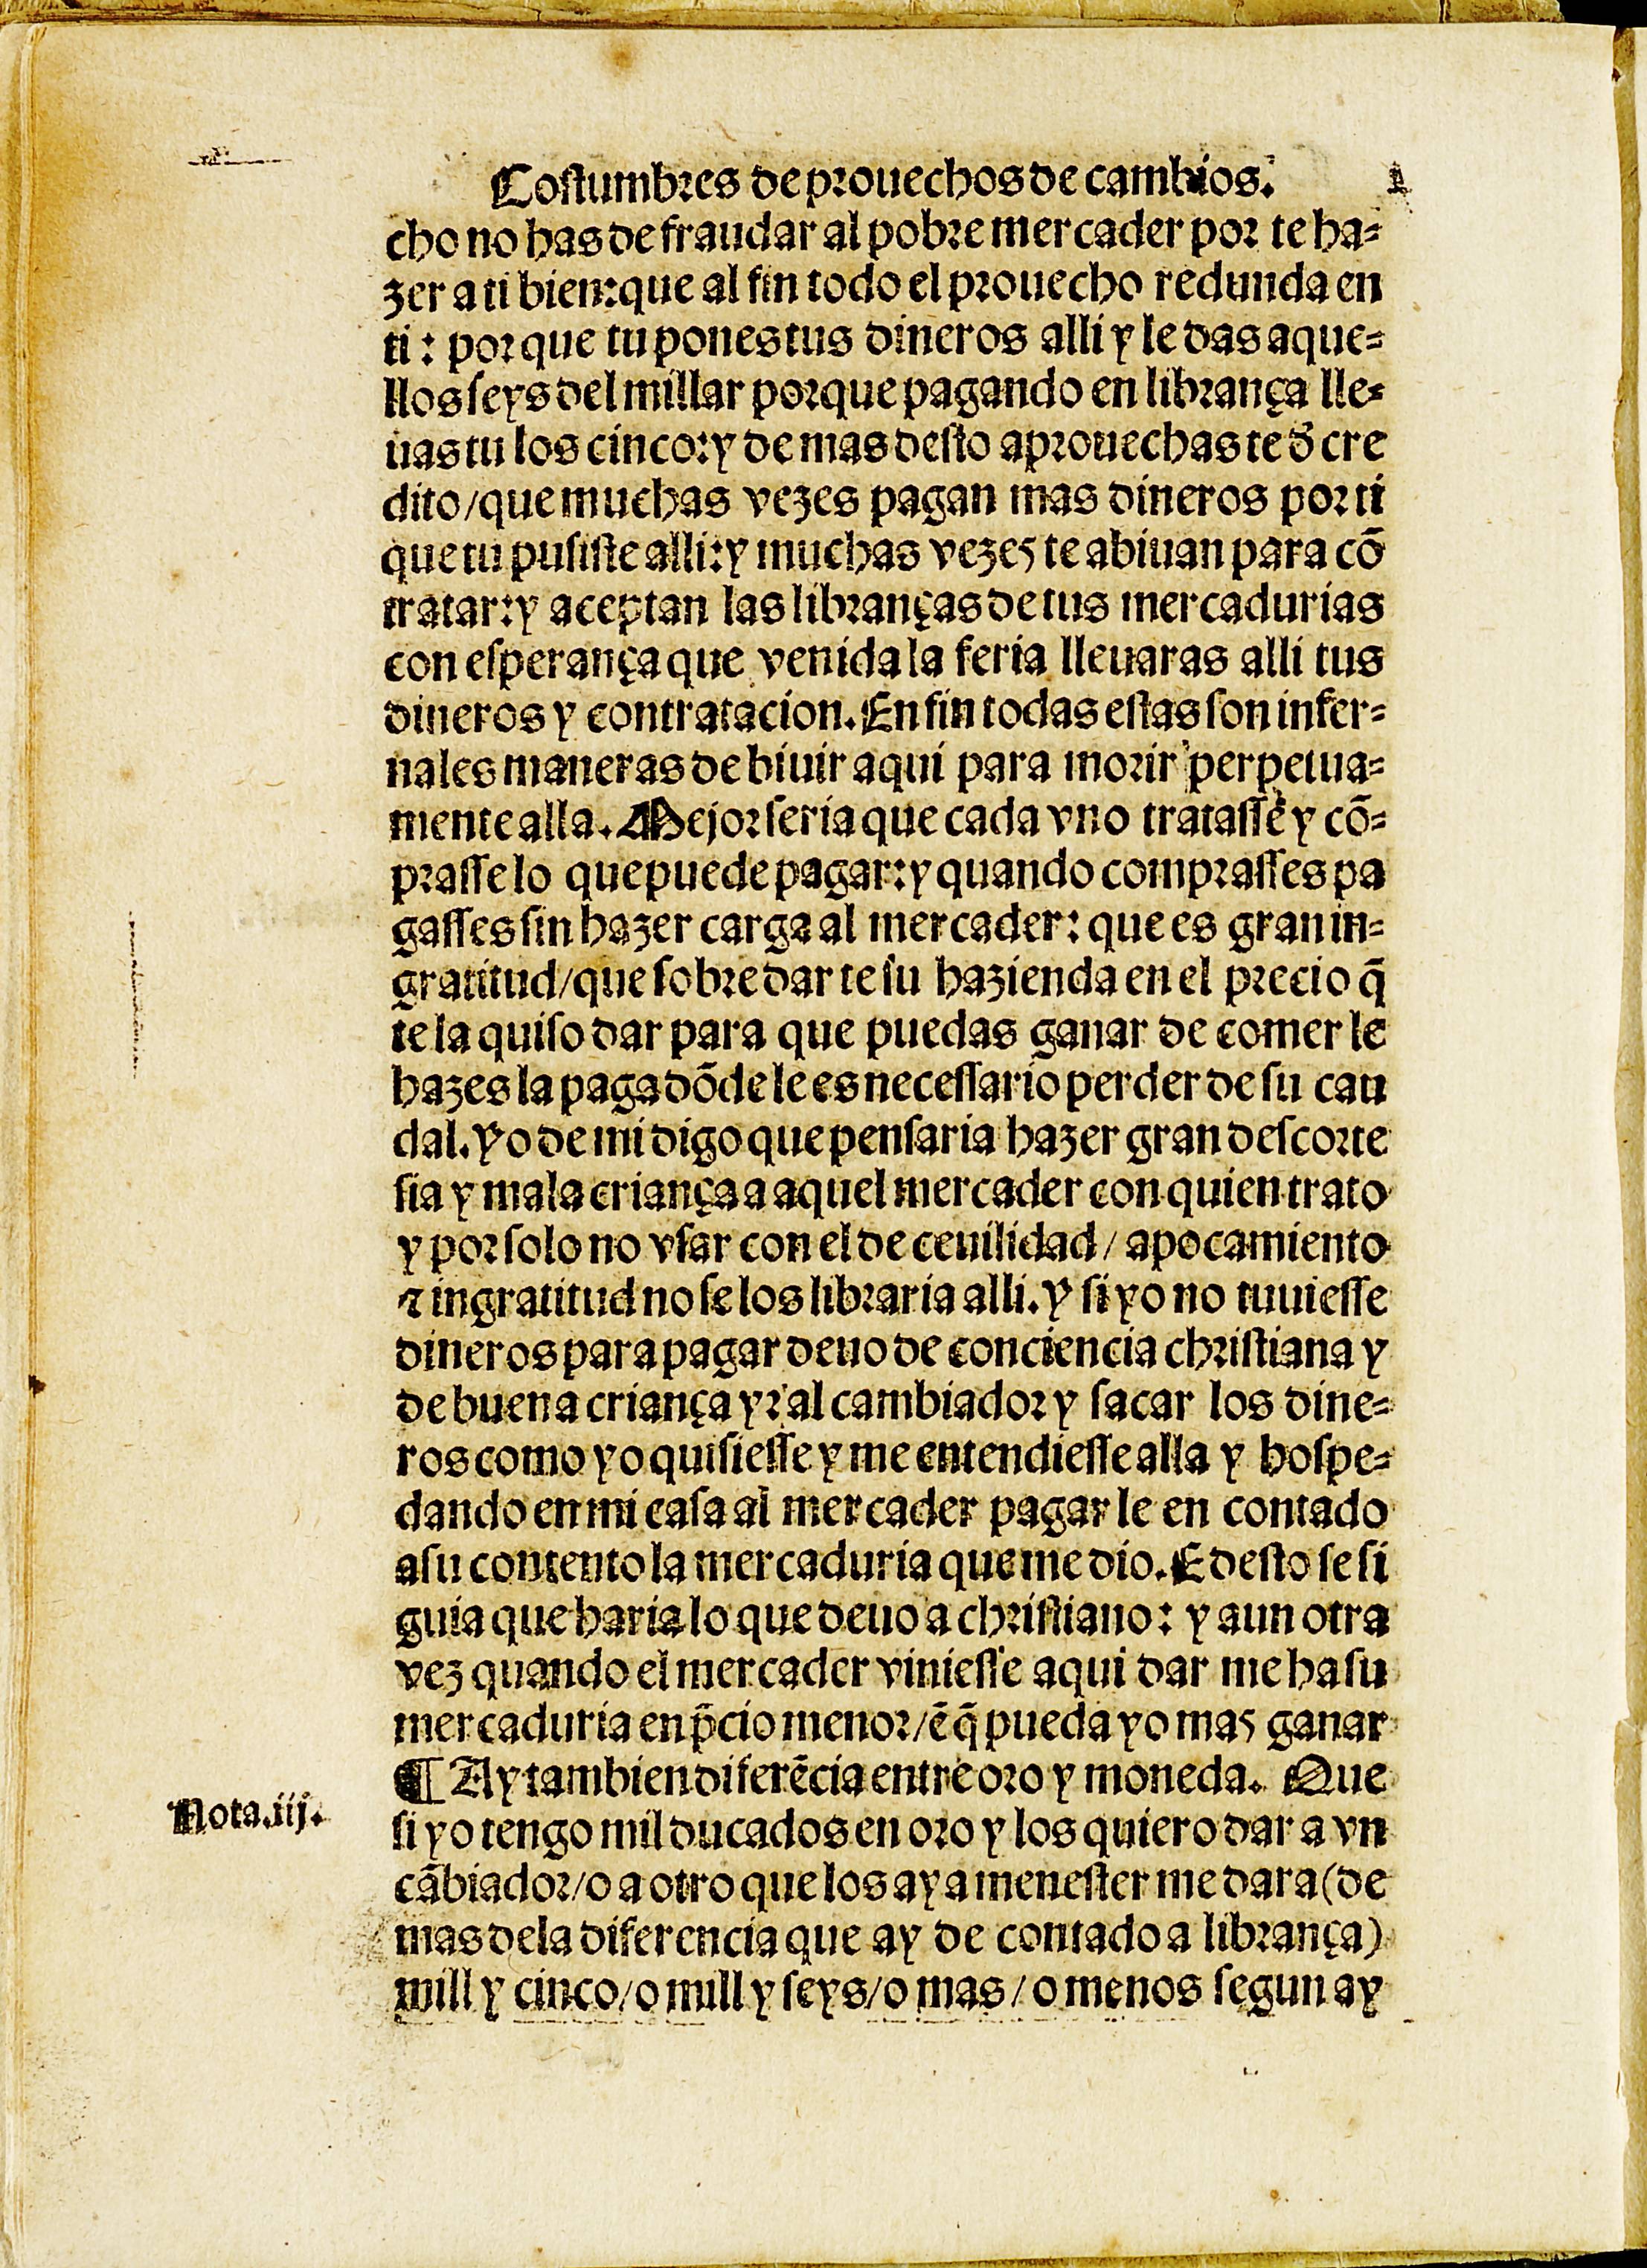 Costumbres de prouechos de cambios.
cho no has de fraudar al pobre mercader por te ha=
zer a ti bien: que al fin todo el prouecho redunda en
ti: porque tu pones tus dineros alli y le das aque=
llos seys del millar porque pagando en librança lle=
uas tu los cinco: y de mas desto aprouechas te d̃ cre
dito/que muchas vezes pagan mas dineros por ti
que tu pusiste alli: y muchas vezes te abiuan para cõ
tratar: y aceptan las libranças de tus mercadurias
con esperança que venida la feria lleuaras alli tus
dineros y contratacion. En fin todas estas son infer=
nales maneras de biuir aqui para morir perpetua=
mente alla. Mejor seria que cada vno tratasse y cõ=
prasse lo que puede pagar: y quando comprasses pa
gasses sin hazer carga al mercader: que es gran in=
gratitud/que sobre dar te su hazienda en el precio q̃
te la quiso dar para que puedas ganar de comer le
hazes la paga dõde le es necessario perder de su cau
dal. Yo de mi digo que pensaria hazer gran descorte
sia y mala criança a aquel mercader con quien trato
y por solo no vsar con el de ceuilidad/ apocamiento
⁊ ingratitud no se los libraria alli. Y si yo no tuuiesse
dineros para pagar deuo de conciencia christiana y
de buena criança yr al cambiador y sacar los dine=
ros como yo quisiesse y me entendiesse alla y hospe=
dando en mi casa al mercader pagar le en contado
a su contento la mercaduria que me dio. E desto se si
guia que haria lo que deuo a christiano: y aun otra
vez quando el mercader viniesse aqui dar me ha su
mercaduria en p̃cio menor/ẽ q̃ pueda yo mas ganar
¶ Ay tambien diferẽcia entre oro y moneda. Que
Nota.iij.
si yo tengo mil ducados en oro y los quiero dar a vn
cãbiador/o a otro que los aya menester me dara (de
mas dela diferencia que ay de contado a librança)
mill y cinco/o mill y seys/o mas/o menos segun ay